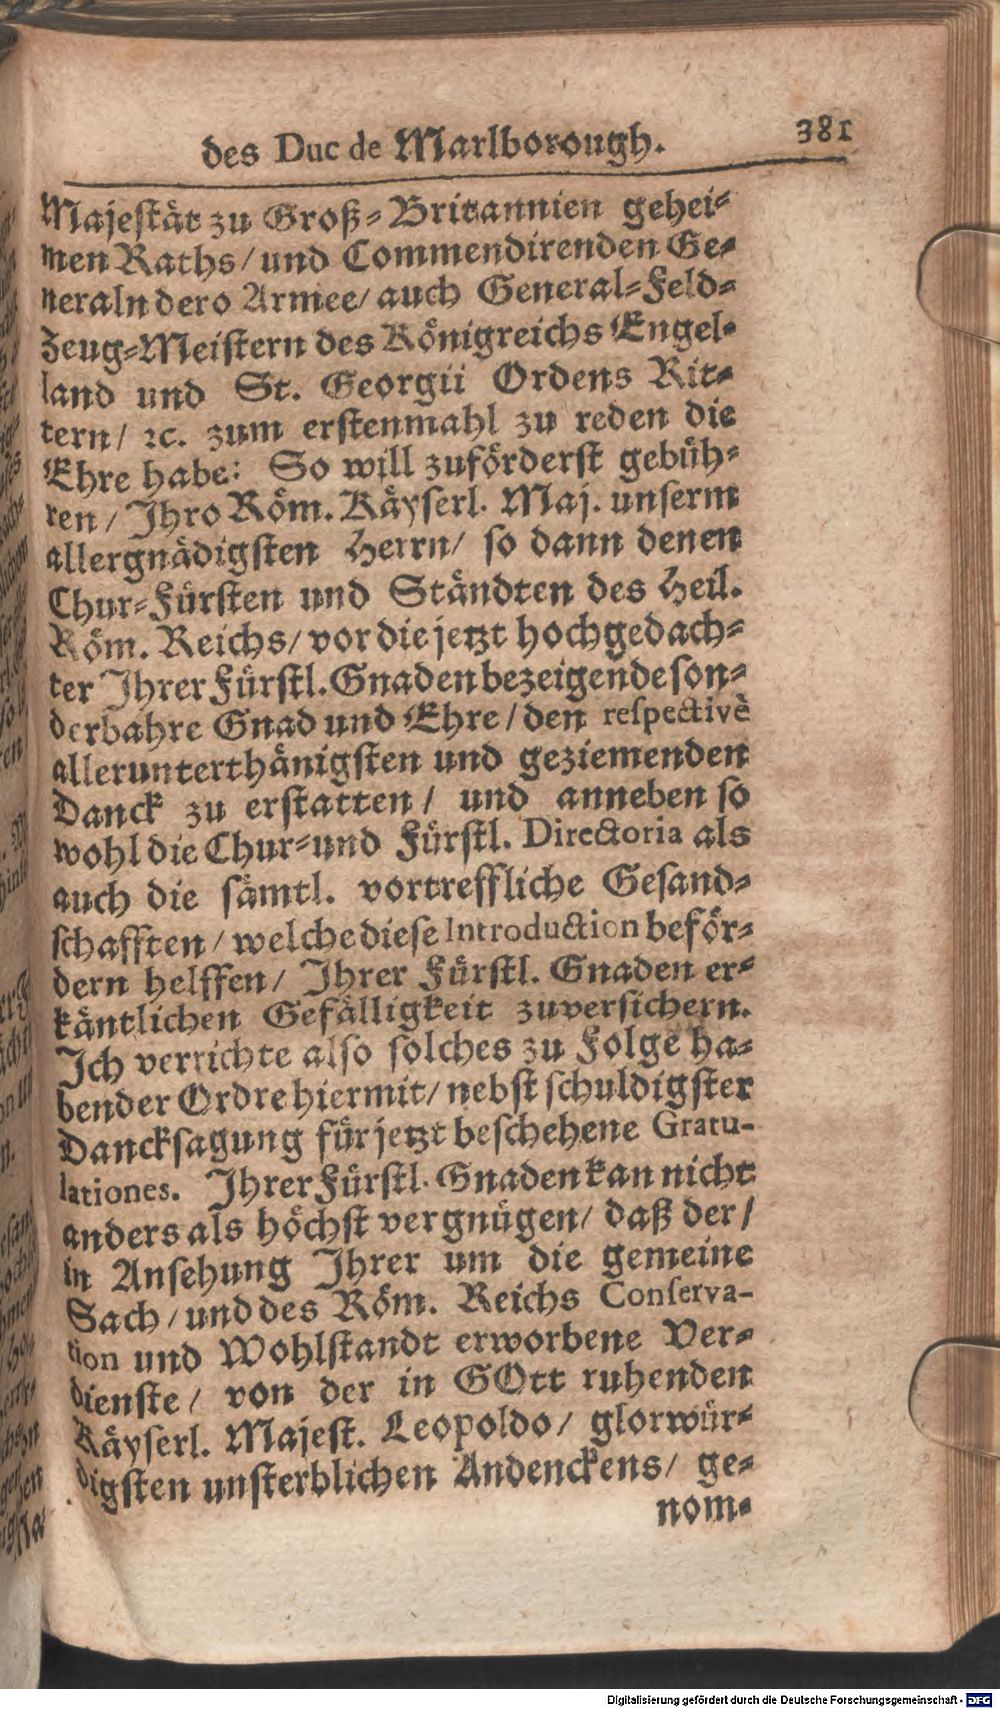 des Duc de Marlborough. 381
Majestät zu Groß-Britannien gehei-
men Raths/ und Commendirenden Ge-
neraln dero Armee/ auch General-Feld-
Zeug-Meistern des Königreichs Engel-
land und St. Georgii Ordens Rit-
tern/ ꝛc. zum erstenmahl zu reden die
Ehre habe: So will zuförderst gebüh-
ren/ Ihro Röm. Käyserl. Maj. unserm
allergnädigsten Herrn/ so dann denen
Chur-Fürsten und Ständten des Heil.
Röm. Reichs/ vor die jetzt hochgedach-
ter Ihrer Fürstl. Gnaden bezeigende son-
derbahre Gnad und Ehre/ den respectivè
allerunterthänigsten und geziemenden
Danck zu erstatten/ und anneben so
wohl die Chur-und Fürstl. Directoria als
auch die sämtl. vortreffliche Gesand-
schafften/ welche diese Introduction beför-
dern helffen/ Ihrer Fürstl. Gnaden er-
käntlichen Gefälligkeit zuversichern.
Ich verrichte also solches zu Folge ha-
bender Ordre hiermit/ nebst schuldigster
Dancksagung für jetzt beschehene Gratu-
lationes. Ihrer Fürstl. Gnaden kan nicht
anders als höchst vergnügen/ daß der/
in Ansehung Ihrer um die gemeine
Sach/ und des Röm. Reichs Conserva-
tion und Wohlstandt erworbene Ver-
dienste/ von der in GOtt ruhenden
Käyserl. Majest. Leopoldo/ glorwür-
digsten unsterblichen Andenckens/ ge-
nom-
Digitalisierung gefördert durch die Deutsche Forschungsgemeinschaft - DFG